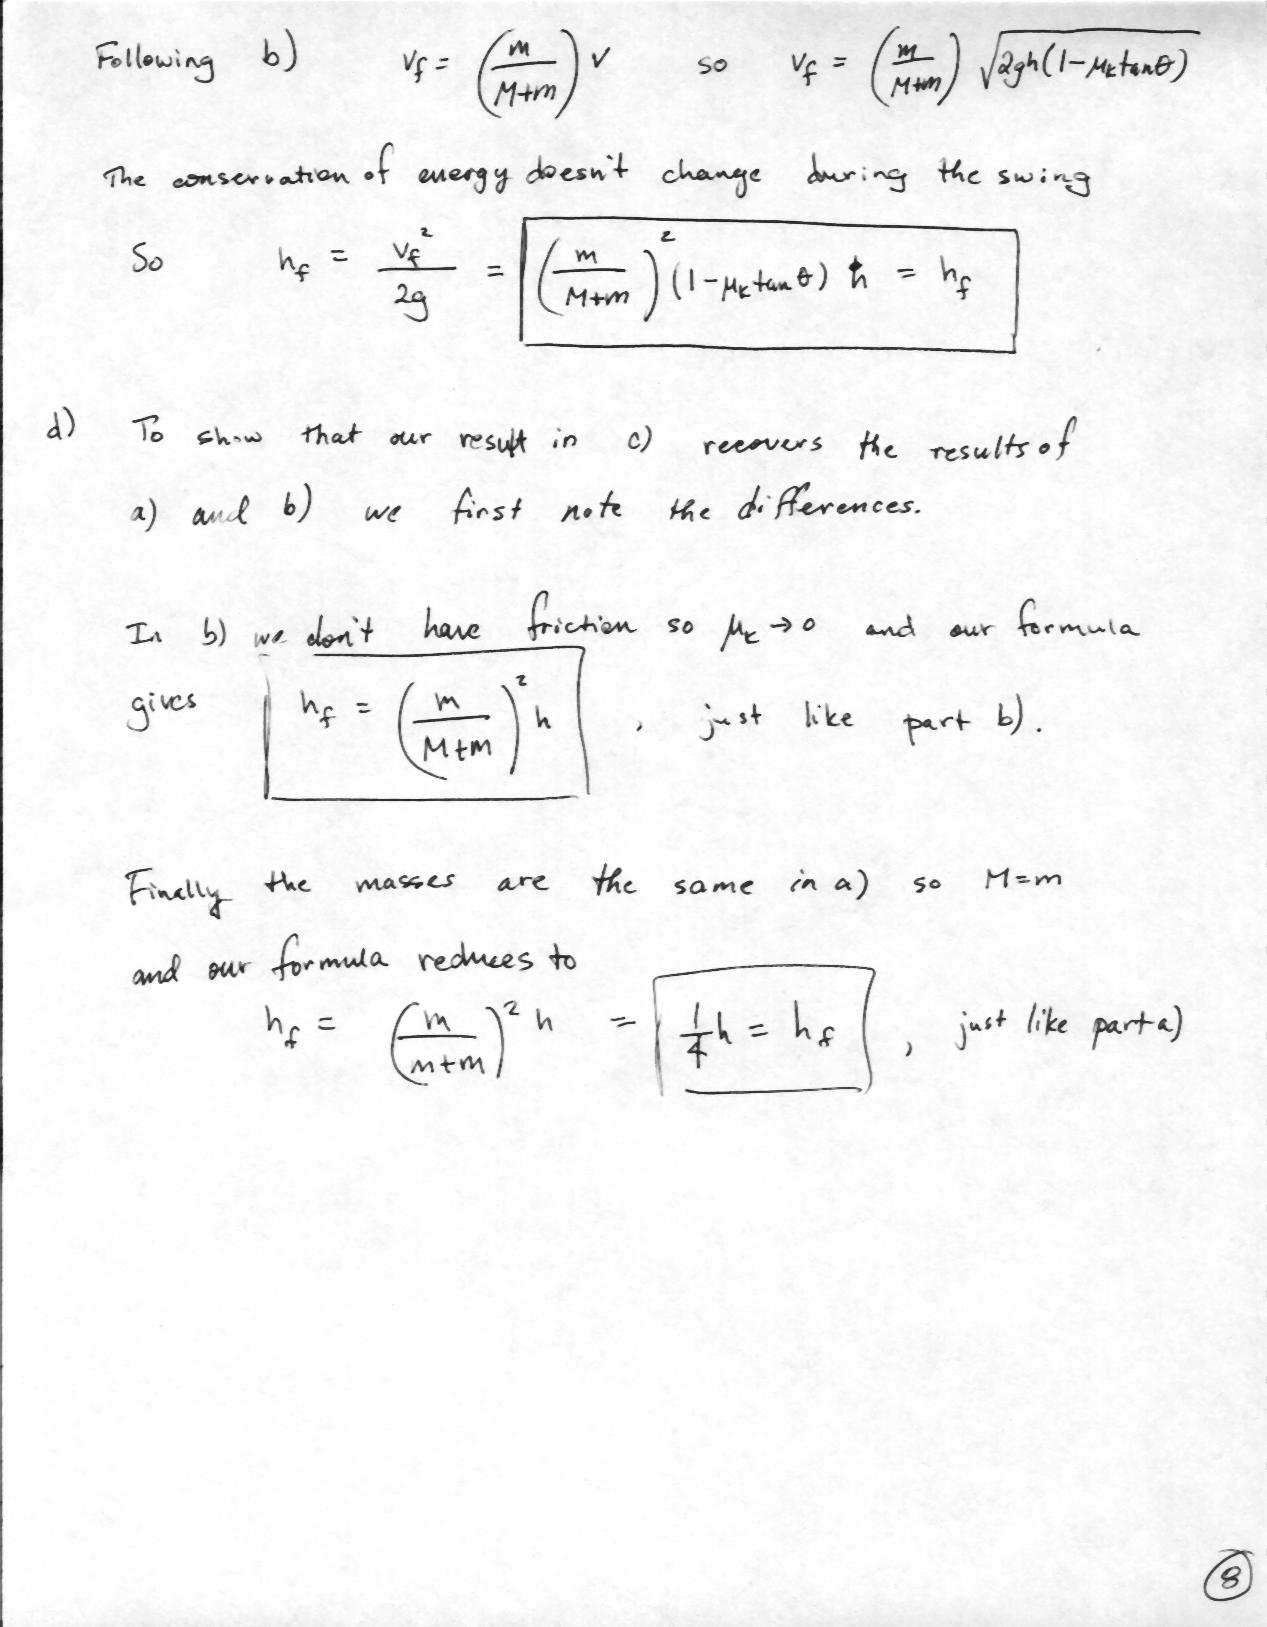 Following b) v_f = (m/(M+m)) v so v_f = (m/(M+m)) √(2gh(1-μ_k tanθ))
The conservation of energy doesn't change during the swing
So h_f = v_f²/2g = (m/(M+m))² (1-μ_k tanθ) h = h_f
d) To show that our result in c) recovers the results of
a) and b) we first note the differences.
In b) we don't have friction so μ_k → 0 and our formula
gives h_f = (m/(M+m))² h , just like part b).
Finally the masses are the same in a) so M=m
and our formula reduces to
h_f = (m/(m+m))² h = 1/4 h = h_f , just like part a)
8